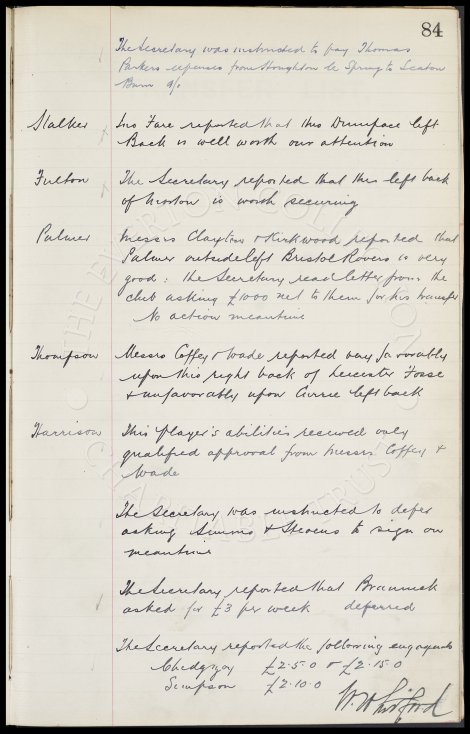 84
The Secretary was instructed to pay Thomas
Parkers expenses from Houghton le Spring to Seaton
Burn a/c
Stalker Jno Fare reported that this Dumf left
Back is well worth our attention
Fulton The Secretary reported that this left back
of Morton is worth securing
Palmer Messrs Clayton & Kirkwood reported that
Palmer outside left Bristol Rovers is very
good: the Secretary read letter from the
club asking £1000 net to them for his transfer
No action meantime
Thompson Messrs Coffey & Wade reported very favorably
upon this right back of Leicester Fosse
& unfavorably upon Currie left back
Harrison This player's abilities received only
qualified approval from Messrs Coffey &
Wade
The Secretary was instructed to defer
asking Simms & Stevens to sign on
meantime
The Secretary reported that Brannick
asked for £3 per week deferred
The Secretary reported the following engagements
Chedgzoy £2.5.0 & £2.15.0
Simpson £2.10.0
W. Whitford
THE EVERTON COLLECTION
CHARITABLE TRUST